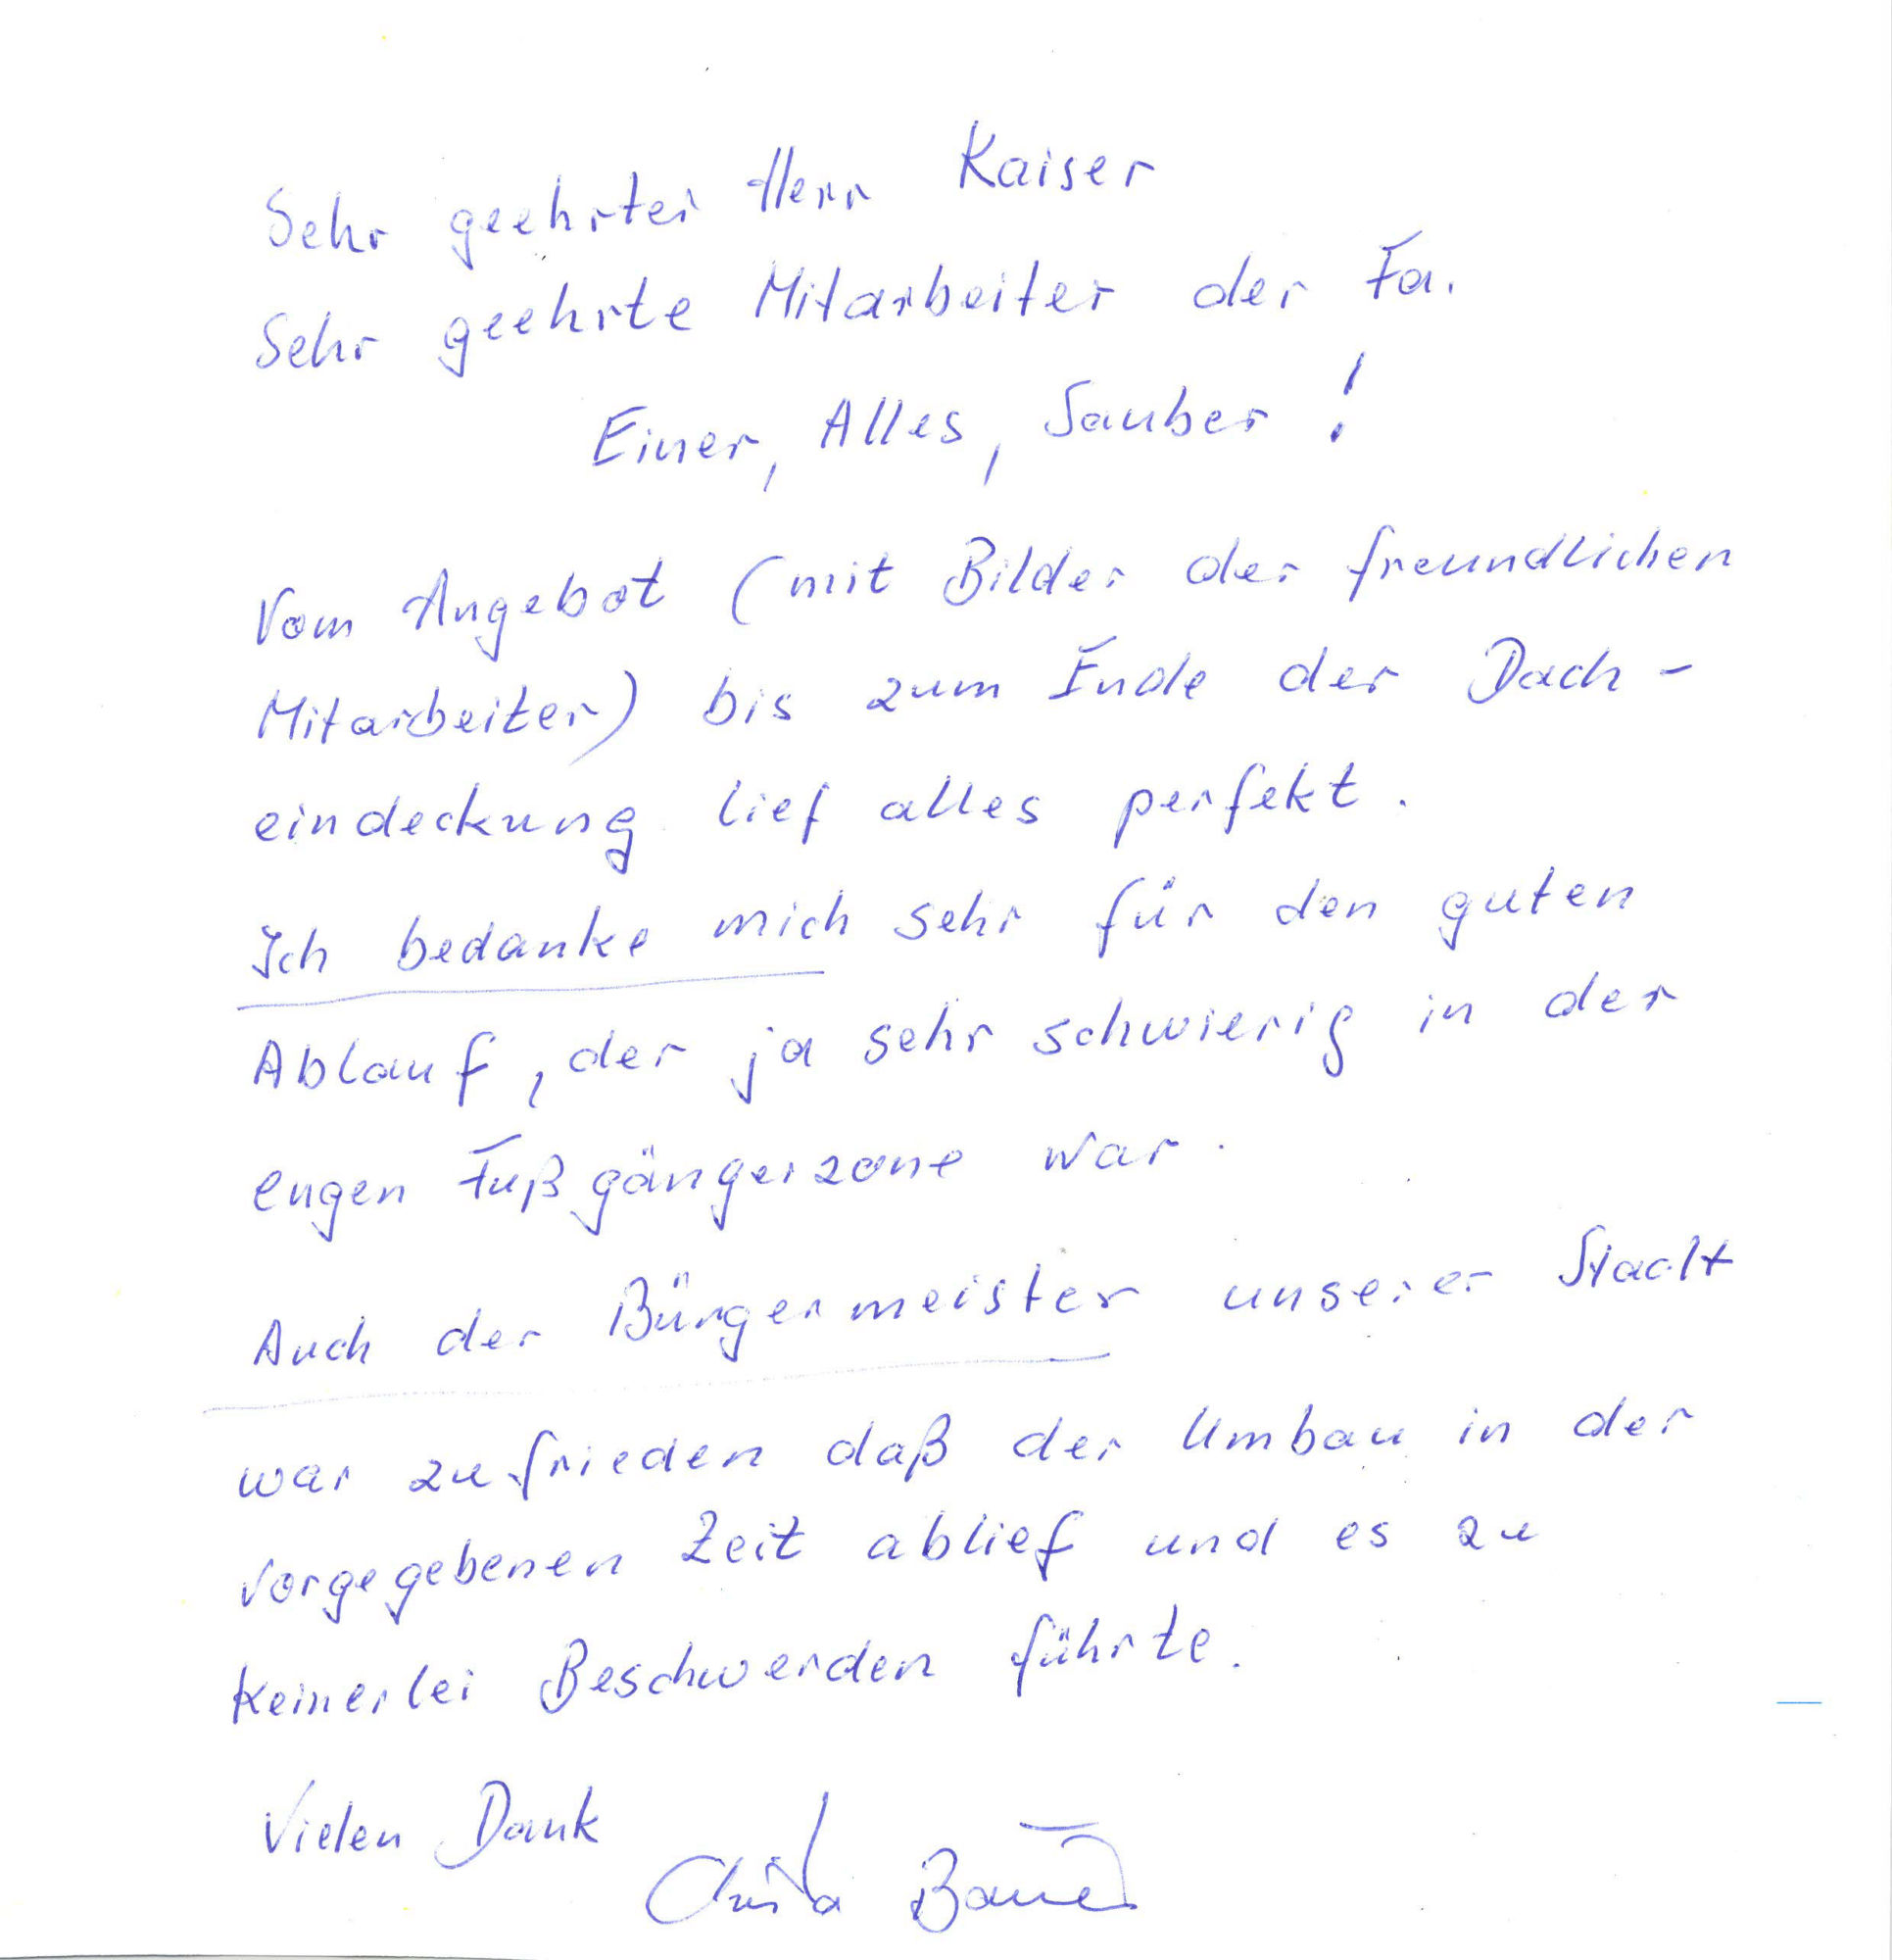 Sehr geehrter Herr Kaiser
Sehr geehrte Mitarbeiter der Fa.
Einer, Alles, Sauber!
Vom Angebot (mit Bilder der freundlichen
Mitarbeiter) bis zum Ende der Dach-
eindeckung lief alles perfekt.
Ich bedanke mich sehr für den guten
Ablauf, der ja sehr schwierig in der
engen Fußgängerzone war.
Auch der Bürgermeister unserer Stadt
war zufrieden daß der Umbau in der
vorgegebenen Zeit ablief und es zu
keinerlei Beschwerden führte.
Vielen Dank
Christa Bauer